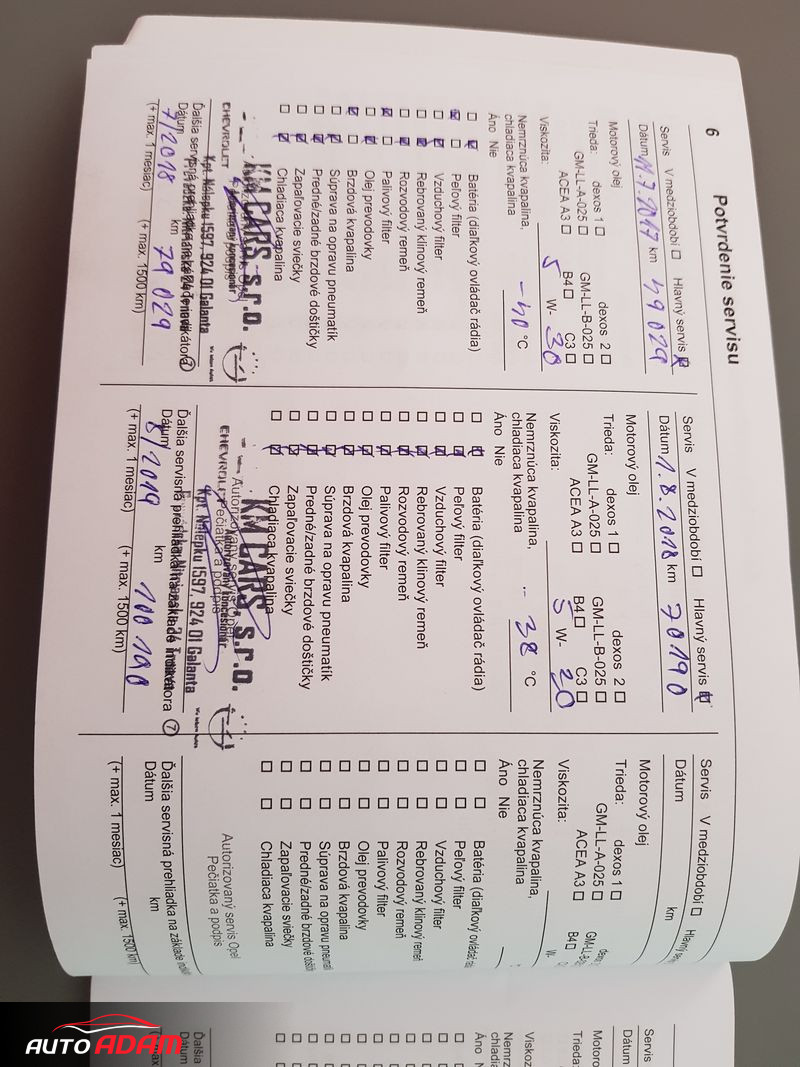 6
Potvrdenie servisu
Servis V medziobdobí ☐ Hlavný servis ☒
Dátum 11.7.2017 km 49029
Motorový olej
Trieda: dexos 1 ☐ dexos 2 ☐
GM-LL-A-025 ☐ GM-LL-B-025 ☐
ACEA A3 ☐ B4 ☐ C3 ☐
Viskozita: 5 W- 30
Nemrznúca kvapalina,
chladiaca kvapalina -40 °C
Áno Nie
☐ ☒ Batéria (diaľkový ovládač rádia)
☒ ☐ Peľový filter
☐ ☒ Vzduchový filter
☐ ☒ Rebrovaný klinový remeň
☐ ☒ Rozvodový remeň
☒ ☐ Palivový filter
☐ ☒ Olej prevodovky
☒ ☐ Brzdová kvapalina
☐ ☒ Súprava na opravu pneumatík
☐ ☒ Predné/zadné brzdové doštičky
☐ ☒ Zapaľovacie sviečky
☐ ☒ Chladiaca kvapalina
KM CARS, s.r.o.
CHEVROLET
Kpt. Nálepku 1597, 924 01 Galanta
Ďalšia servisná
Dátum 7/2018 km 79 029
(+ max. 1 mesiac) (+ max. 1500 km)
Servis V medziobdobí ☐ Hlavný servis ☒
Dátum 1.8.2018 km 70190
Motorový olej
Trieda: dexos 1 ☐ dexos 2 ☐
GM-LL-A-025 ☐ GM-LL-B-025 ☐
ACEA A3 ☐ B4 ☐ C3 ☐
Viskozita: 5 W- 20
Nemrznúca kvapalina,
chladiaca kvapalina -38 °C
Áno Nie
☐ ☒ Batéria (diaľkový ovládač rádia)
☐ ☒ Peľový filter
☐ ☒ Vzduchový filter
☐ ☒ Rebrovaný klinový remeň
☐ ☒ Rozvodový remeň
☐ ☒ Palivový filter
☐ ☒ Olej prevodovky
☐ ☒ Brzdová kvapalina
☐ ☒ Súprava na opravu pneumatík
☐ ☒ Predné/zadné brzdové doštičky
☐ ☒ Zapaľovacie sviečky
☐ ☒ Chladiaca kvapalina
KM CARS, s.r.o.
Autorizovaný koncesionár
CHEVROLET Pečiatka a podpis
Kpt. Nálepku 1597, 924 01 Galanta
Ďalšia servisná prehliadka na základe indikátora 7
Dátum 8/2019 km 100 190
(+ max. 1 mesiac) (+ max. 1500 km)
Servis V medziobdobí ☐ Hlavný
Dátum km
Motorový olej
Trieda: dexos 1 ☐
GM-LL-A-025 ☐
ACEA A3 ☐ B4 ☐
Viskozita: W-
Nemrznúca kvapalina,
chladiaca kvapalina
Áno Nie
☐ ☐ Batéria (diaľkový ovládač
☐ ☐ Peľový filter
☐ ☐ Vzduchový filter
☐ ☐ Rebrovaný klinový remeň
☐ ☐ Rozvodový remeň
☐ ☐ Palivový filter
☐ ☐ Olej prevodovky
☐ ☐ Brzdová kvapalina
☐ ☐ Súprava na opravu
☐ ☐ Predné/zadné brzdové
☐ ☐ Zapaľovacie sviečky
☐ ☐ Chladiaca kvapalina
Autorizovaný servis Opel
Pečiatka a podpis
Ďalšia servisná prehliadka na základe
Dátum km
(+ max. 1 mesiac) (+ max. 1500 km)
Servis
Dátum
Motorový
Trieda:
Viskoz
Nemrz
chladia
Áno
Ďalšia
Dátum
AUTO ADAM